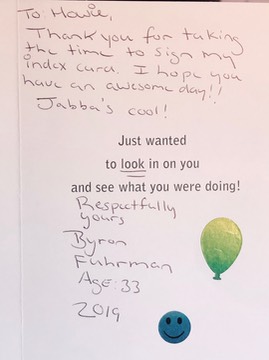 To: Howie,
Thank you for taking
the time to sign my
index card. I hope you
have an awesome day!!
Jabba's cool!
Just wanted
to look in on you
and see what you were doing!
Respectfully
yours
Byron
Fuhrman
Age: 33
2019